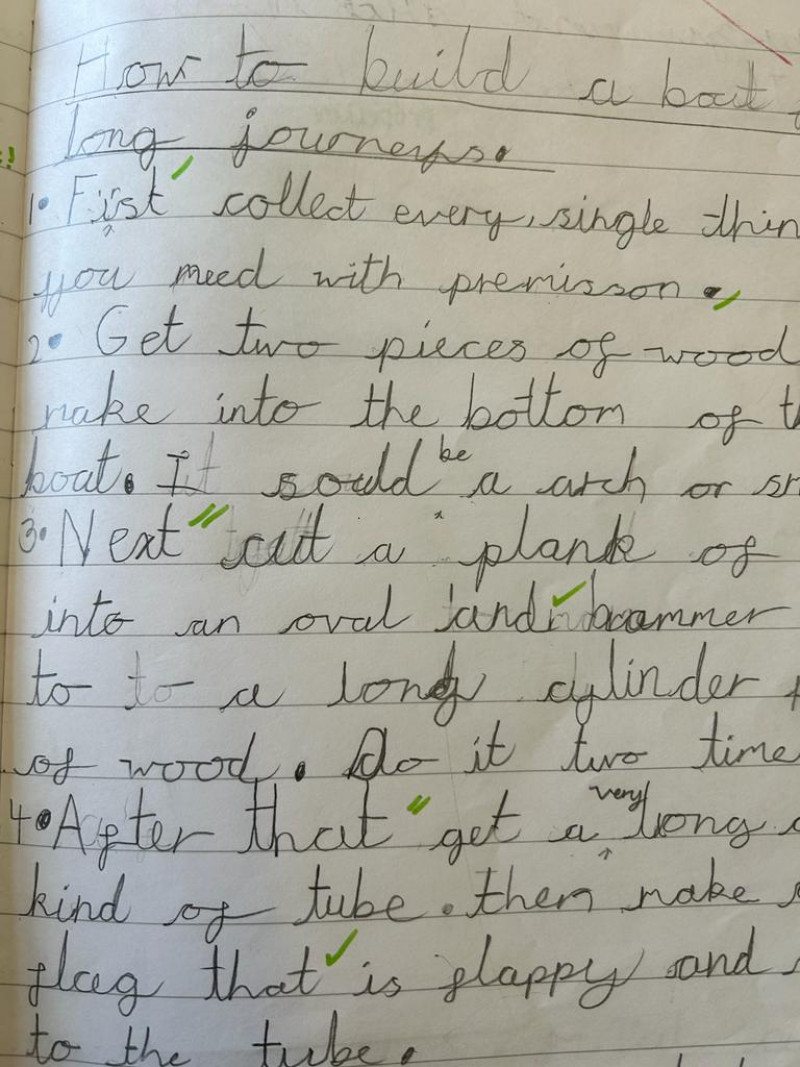 How to build a boat
long journeys.
1. First collect every single thin
you need with premisson.
2. Get two pieces of wood
make into the bottom of th
boat. It sould be a arch or
3. Next cut a plank of
into an oval and hammer
to to a long cylinder
of wood. Do it two time
4. After that get a very long
kind of tube. then make
flag that is flappy and
to the tube.